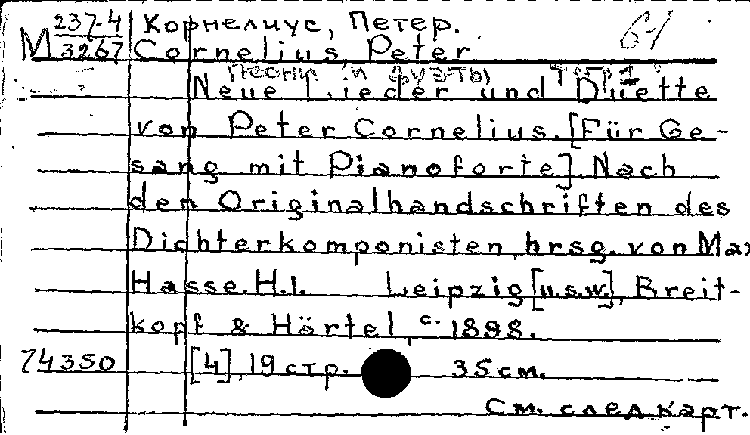 М 237-4 Корнелиус, Петер. 61
3267 Cornelius, Peter
Песни и дуэты
Neue Lieder und Duette
von Peter Cornelius. [Für Ge-
sang mit Pianoforte] Nach
den Originalhandschriften des
Dichterkomponisten hrsg. von Max
Hasse. H.1. Leipzig [u.s.w.], Breit-
kopf & Härtel, c. 1898.
74350 [4], 19 стр. 35 см.
См. след. карт.